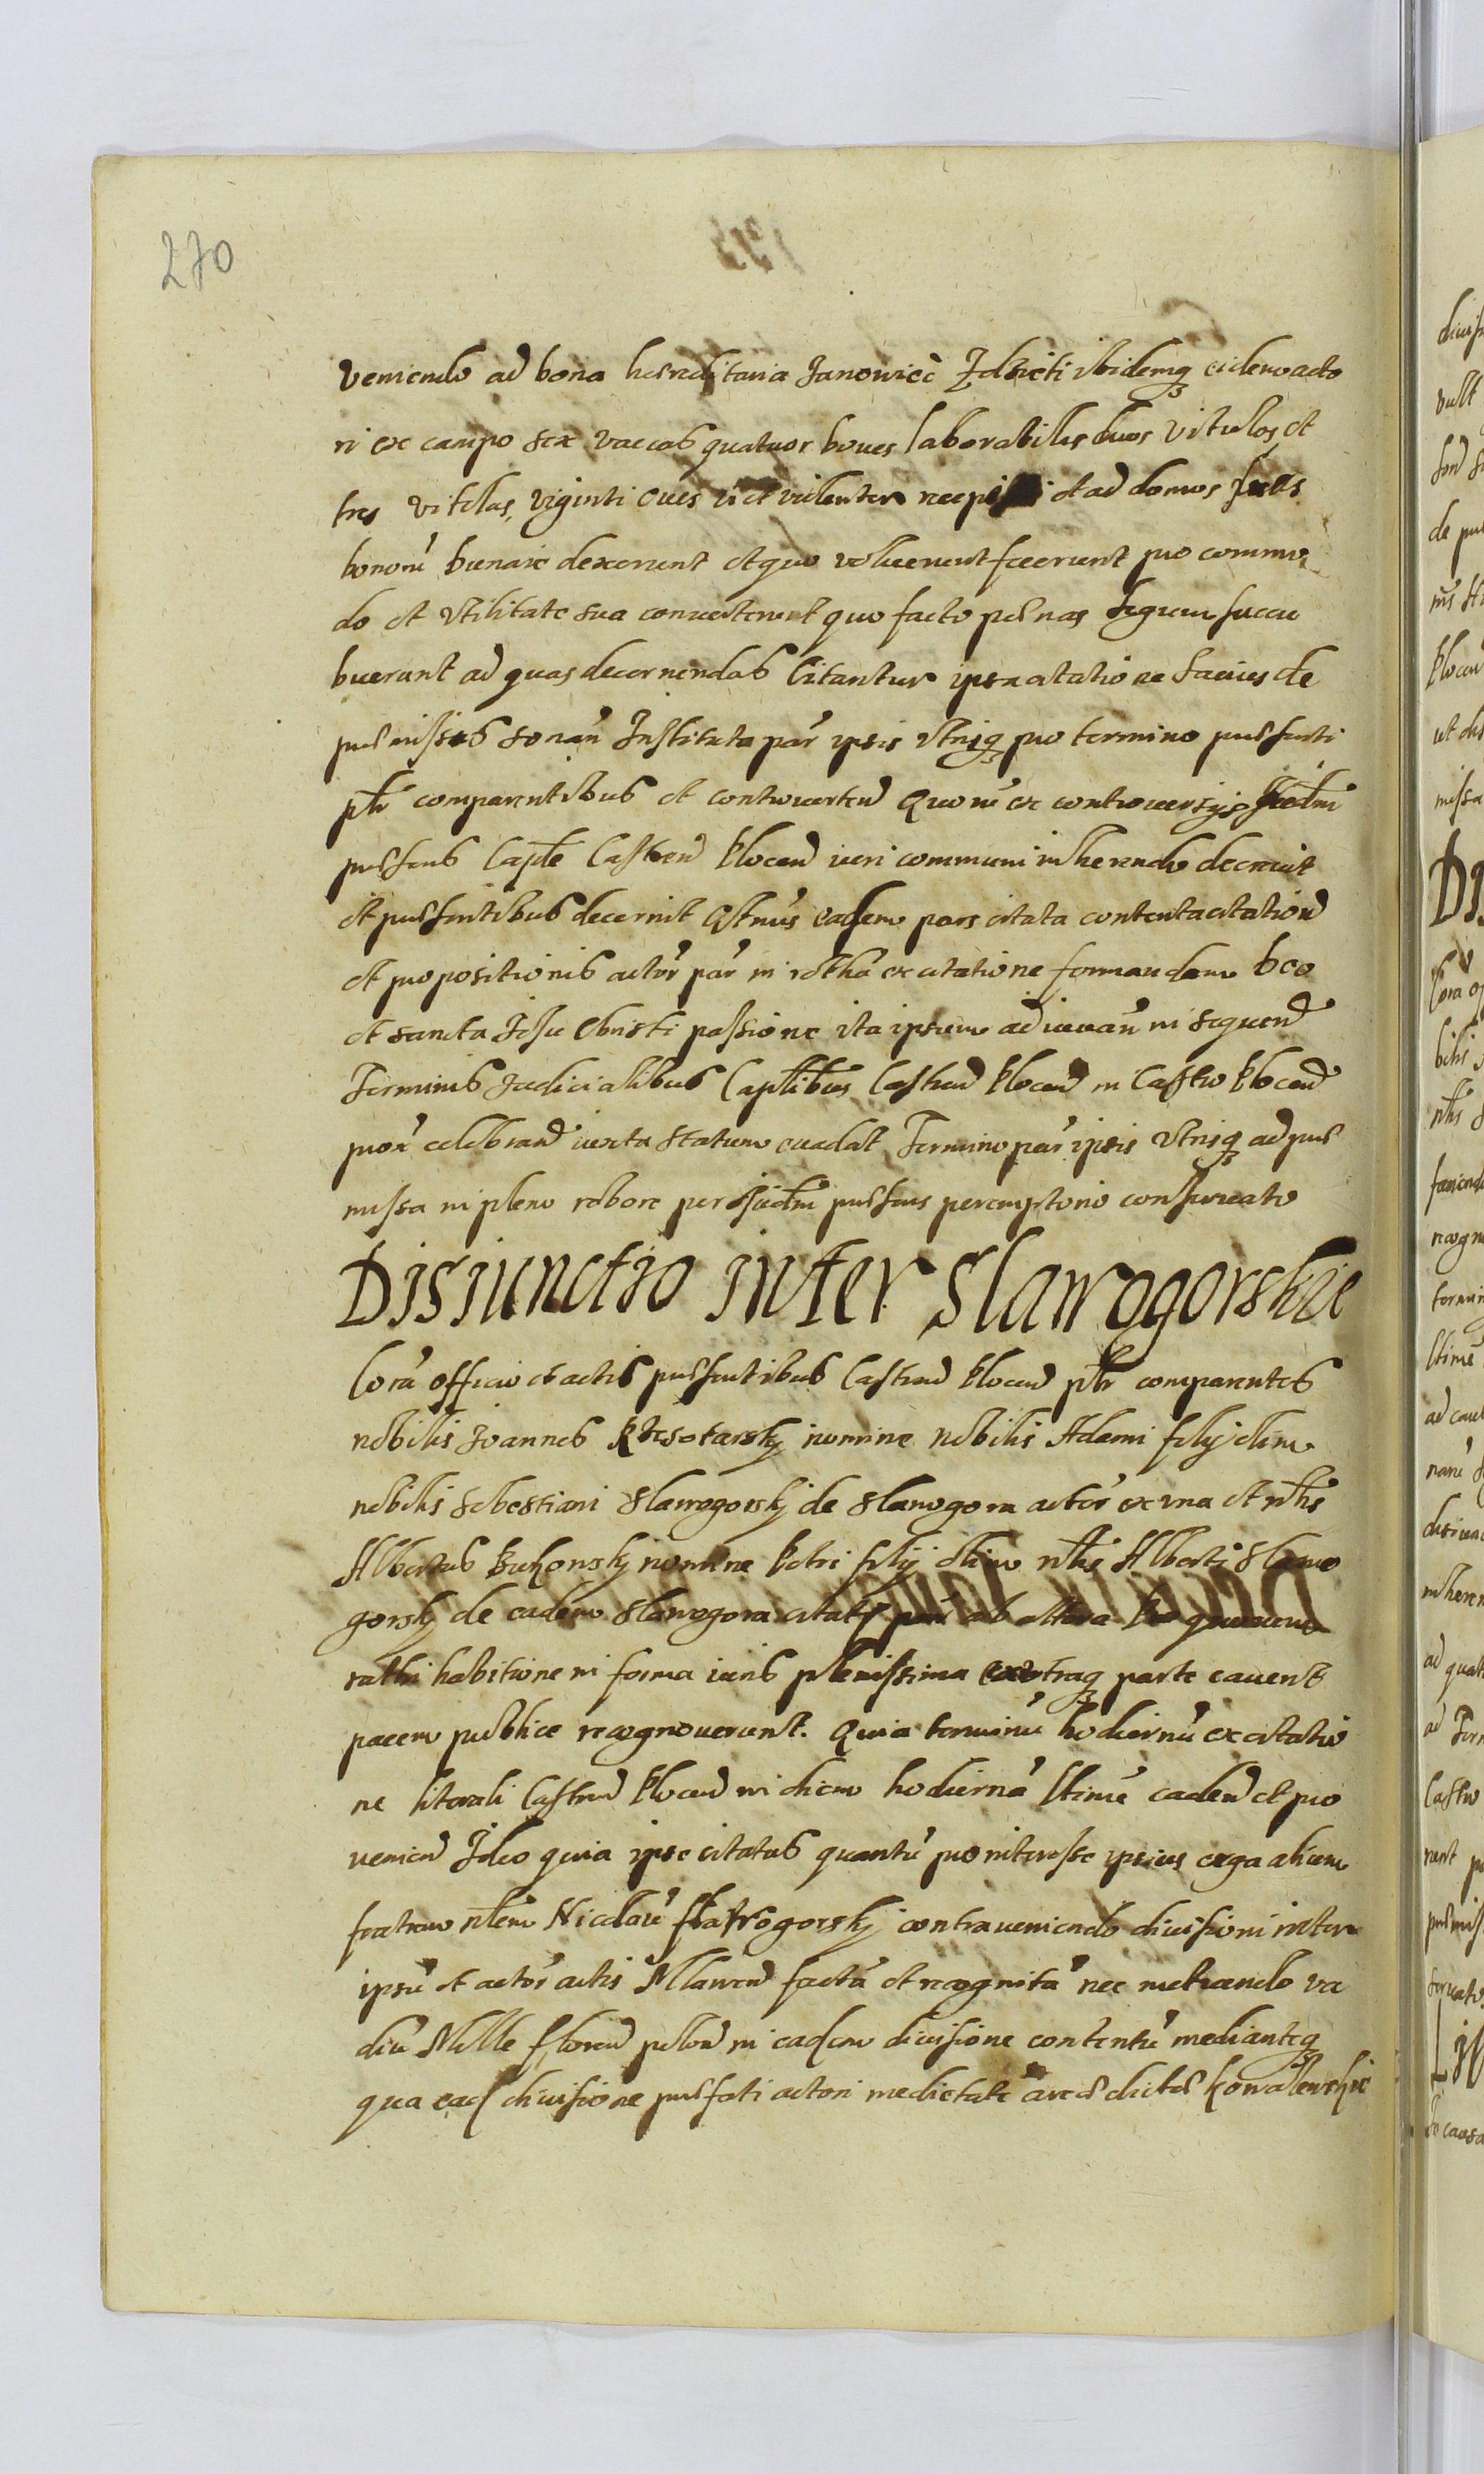 270
veniendo ad bona hereditaria Janowiec Idzieti ibidemq eidem acto
ri ex campo sex vaccas quatuor boves laborabiles duos vitulos et
tres vitulas, viginti oves vi et violenter recepi et ad domos suas
bonorū duxerunt et quo voluerunt fecerunt pro commo
do et utilitate sua converterunt quo facto penas legum succu
buerunt ad quas decernendas Citantur ipsa citatione latius de
premissis sonan Instituta par ipsis utrisq pro termino presenti
pltr comparentibus et controverten Quorū ex controversijs Judm
presens Caple Castren Plocen iuri communi inherendo decrevit
et presentibus decernit Qtnus eadem pars citata contenta citation
et propositionis actor par in rotha ex citatione formandam deo
et sancta Jesu Christi passione ita ipsum adiuvan in sequen
Terminis Judicialibus Caplibus Castren Plocen in Castro Plocen
prox celebran iuxta statum evadat Termino par ipsis utrisq ad pre
missa in pleno robore per Judm presens peremptorio conservato
Disiunctio inter Slawogorskie
Corā officio et actis presentibus Castren Plocen pltr comparentes
nobilis Joannes Krzsotarsky nomine nobilis Adami filij olim
nobilis Sebestiani Slawogorskj de Slawogora actor ex una et nblis
Albertus Bukonsky nomine Petri filij olim nblis Alberti Slawo
gorsky de eadem Slawogora citat par ab altera
rathi habitione in forma iuris plenissima ex utraq parte cavent
pacem publice recognoverunt. Quia terminū hodiernū ex citatio
ne literali Castren Plocen in diem hodiernā ltime caden et pro
venien Ideo quia ipse citatus quantū pro interesse ipsius erga alium
fratrem nblem Nicolaū Slawogorskj contraveniendo divisioni inter
ipsū et actor actis Mlawen factā et recognitā nec metuendo va
diū Mille floren polon in eadem divisione contentū mediantēq
qua ead divisione presati actori medietatē areae dictae Kowalewskie